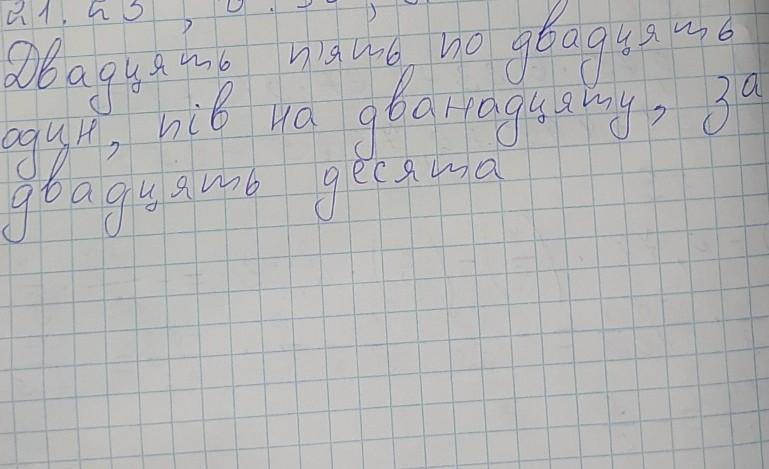 21.25,
Двадцять п'ять по двадцять
один, пів на дванадцяту, за
двадцять десята